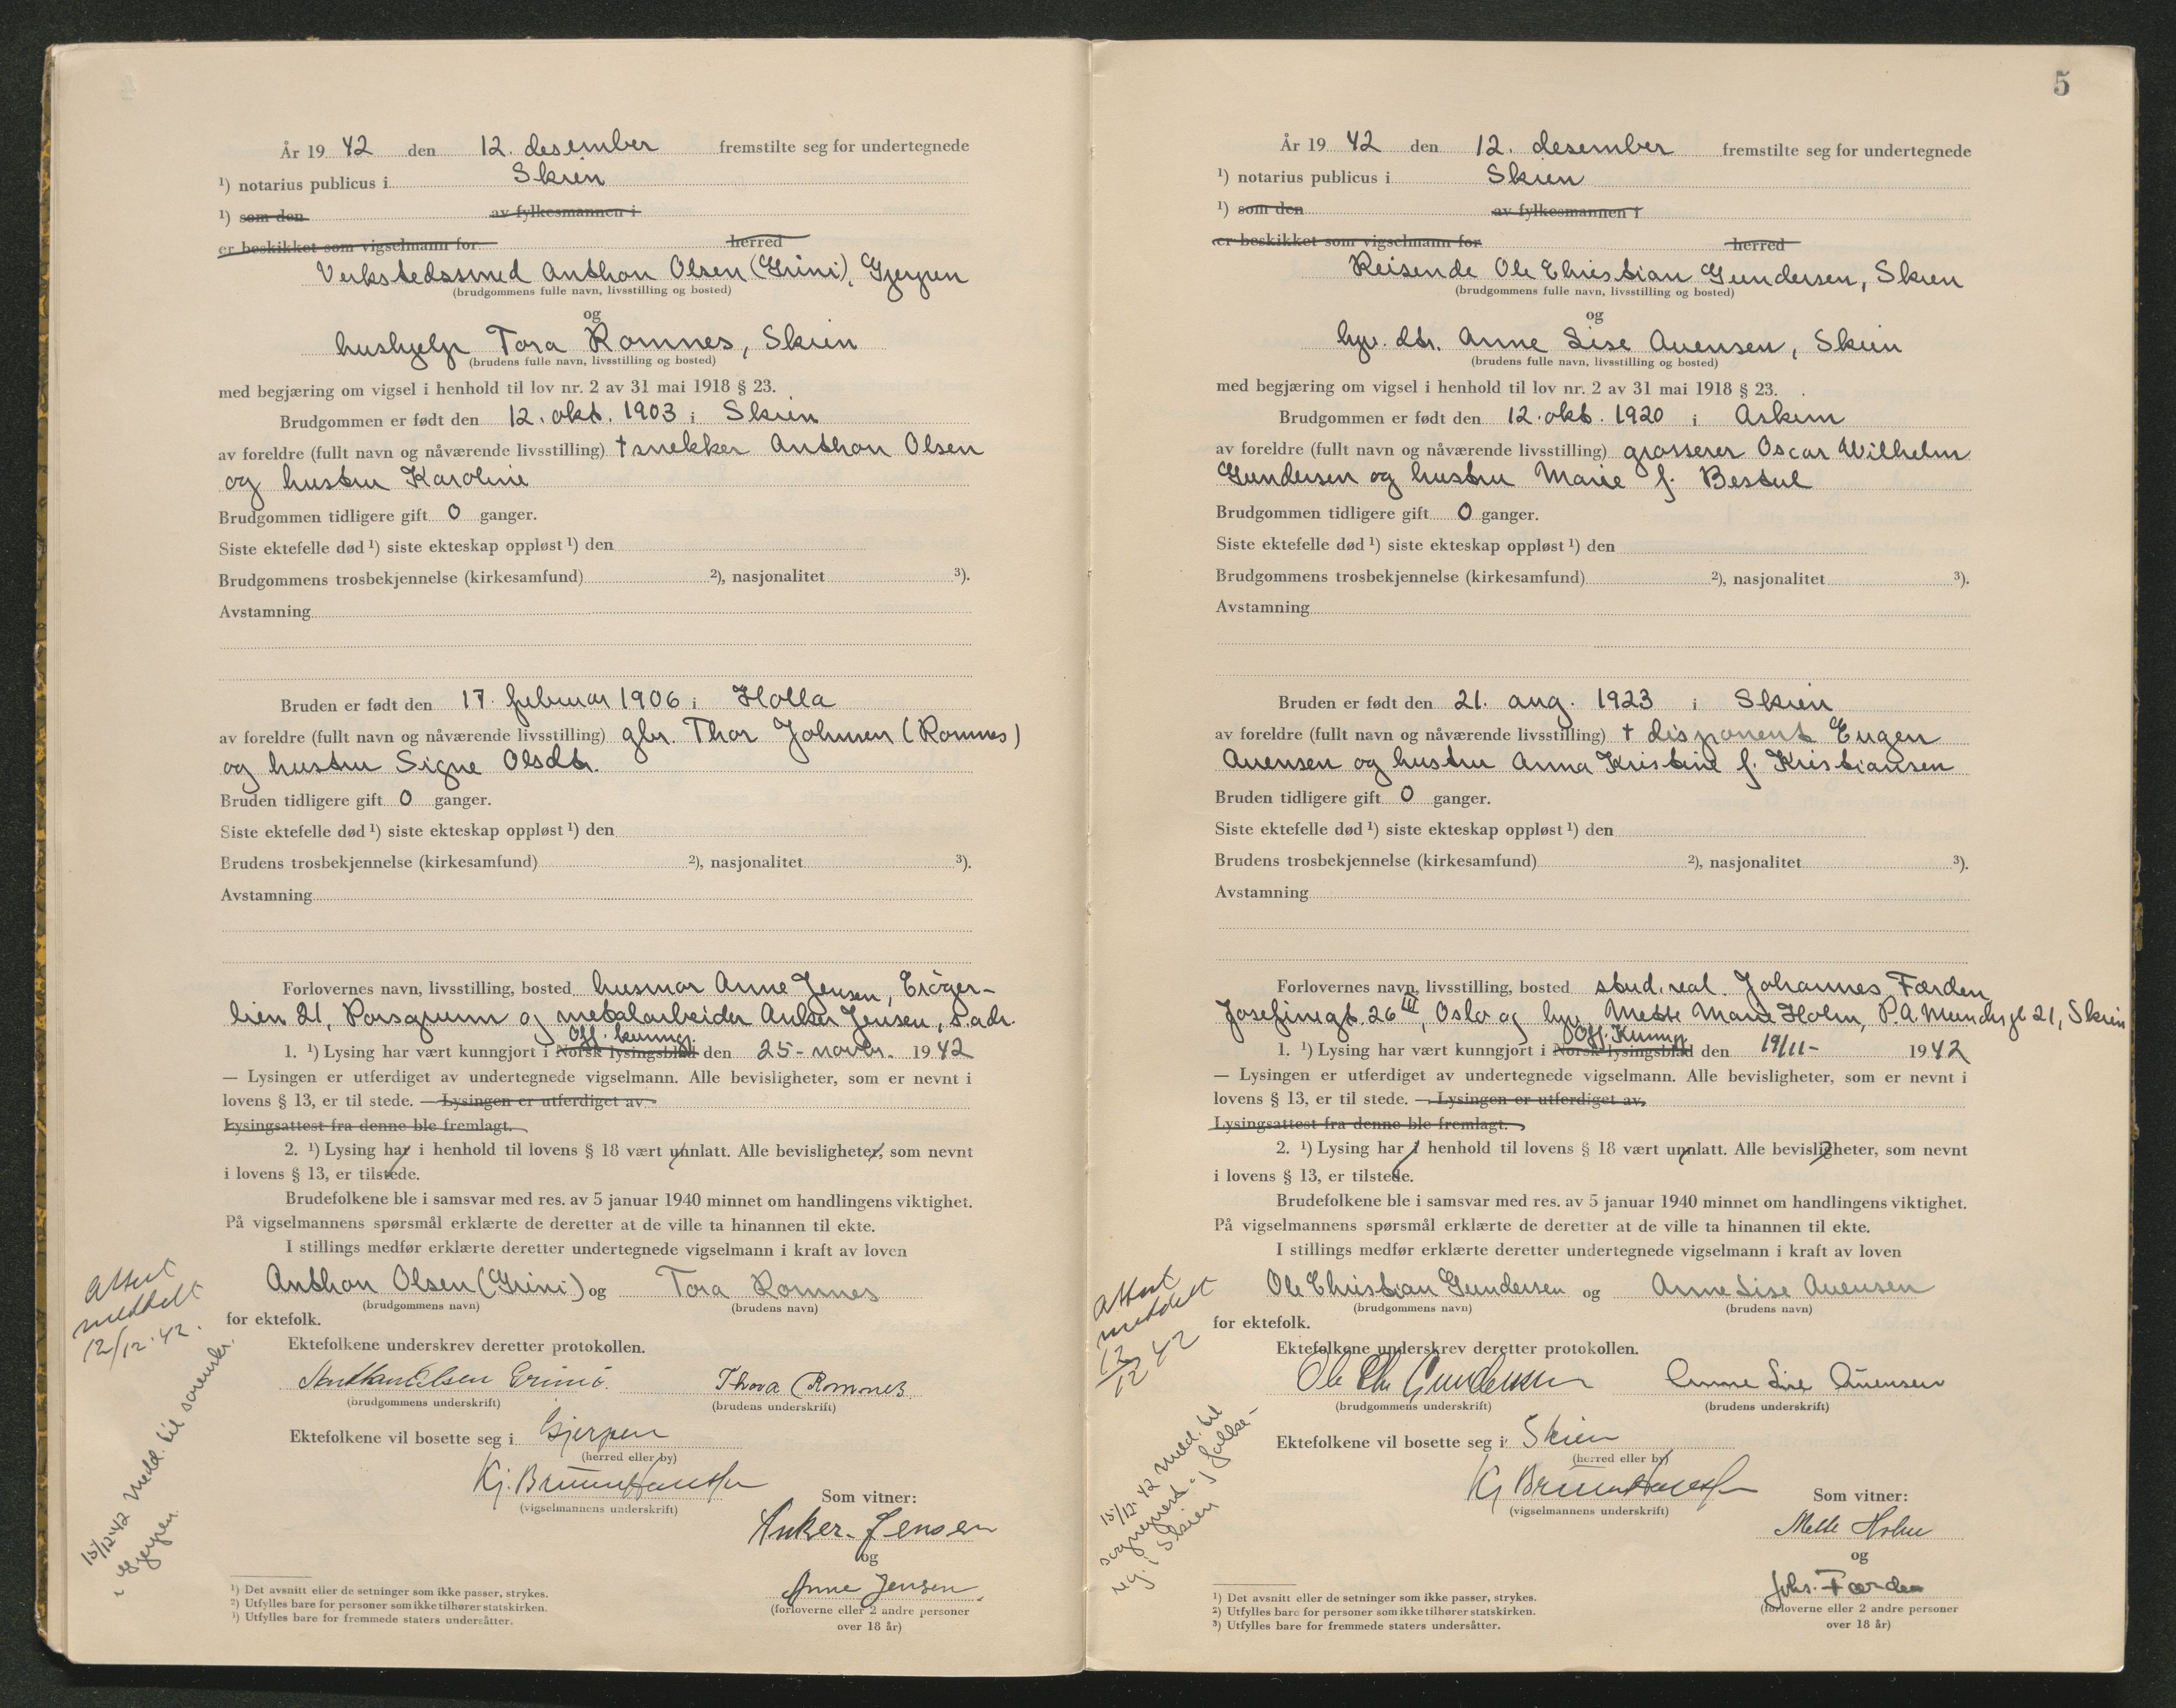 År 19 42 den 12. desember fremstilte seg for undertegnede
¹) notarius publicus i Skien
¹) som den av fylkesmannen i
er beskikket som vigselmann for herred
Verkstedssmed Anthon Olsen (Grini), Gjerpen
(brudgommens fulle navn, livsstilling og bosted)
og
hushjelp Tora Romnes, Skien
(brudens fulle navn, livsstilling og bosted)
med begjæring om vigsel i henhold til lov nr. 2 av 31 mai 1918 § 23.
Brudgommen er født den 12. okt. 1903 i Skien
av foreldre (fullt navn og nåværende livsstilling) † snekker Anthon Olsen
og hustru Karoline
Brudgommen tidligere gift 0 ganger.
Siste ektefelle død ¹) siste ekteskap oppløst ¹) den
Brudgommens trosbekjennelse (kirkesamfund) ²), nasjonalitet ³).
Avstamning
Bruden er født den 17. februar 1906 i Holla
av foreldre (fullt navn og nåværende livsstilling) gbr. Thor Johnsen (Romnes)
og hustru Signe Olsdtr.
Bruden tidligere gift 0 ganger.
Siste ektefelle død ¹) siste ekteskap oppløst ¹) den
Brudens trosbekjennelse (kirkesamfund) ²), nasjonalitet ³).
Avstamning
Forlovernes navn, livsstilling, bosted husmor Anne Jensen,
lien 21, Porsgrunn og metalarbeider Anker Jensen, s. adr.
Off. kunngj.
1. ¹) Lysing har vært kunngjort i Norsk lysingsblad den 25- novbr. 19 42
— Lysingen er utferdiget av undertegnede vigselmann. Alle bevisligheter, som er nevnt i
lovens § 13, er til stede. — Lysingen er utferdiget av
Lysingsattest fra denne ble fremlagt.
2. ¹) Lysing har i henhold til lovens § 18 vært unnlatt. Alle bevisligheter, som nevnt
i lovens § 13, er tilstede.
Brudefolkene ble i samsvar med res. av 5 januar 1940 minnet om handlingens viktighet.
På vigselmannens spørsmål erklærte de deretter at de ville ta hinannen til ekte.
I stillings medfør erklærte deretter undertegnede vigselmann i kraft av loven
Anthon Olsen (Grini) og Tora Romnes
(brudgommens navn) (brudens navn)
for ektefolk.
Ektefolkene underskrev deretter protokollen.
Anthon Olsen Grini. Thora Romnes
(brudgommens underskrift) (brudens underskrift)
Ektefolkene vil bosette seg i Gjerpen
(herred eller by)
Kj. Bruun Hanssen
(vigselmannens underskrift)
Som vitner:
Anker Jensen
og
Anne Jensen
(forloverne eller 2 andre personer
over 18 år)
¹) Det avsnitt eller de setninger som ikke passer, strykes.
²) Utfylles bare for personer som ikke tilhører statskirken.
³) Utfylles bare for fremmede staters undersåtter.
Attest
meddelt
12/12-42.
15/12-42 medd. til sorenskr.
i Gjerpen.
5
År 19 42 den 12. desember fremstilte seg for undertegnede
¹) notarius publicus i Skien
¹) som den av fylkesmannen i
er beskikket som vigselmann for herred
Reisende Ole Christian Gundersen, Skien
(brudgommens fulle navn, livsstilling og bosted)
og
hjv. dtr. Anne Lise Auensen, Skien
(brudens fulle navn, livsstilling og bosted)
med begjæring om vigsel i henhold til lov nr. 2 av 31 mai 1918 § 23.
Brudgommen er født den 12. okt. 1920 i Askim
av foreldre (fullt navn og nåværende livsstilling) grosserer Oscar Wilhelm
Gundersen og hustru Marie f. Bestul
Brudgommen tidligere gift 0 ganger.
Siste ektefelle død ¹) siste ekteskap oppløst ¹) den
Brudgommens trosbekjennelse (kirkesamfund) ²), nasjonalitet ³).
Avstamning
Bruden er født den 21. aug. 1923 i Skien
av foreldre (fullt navn og nåværende livsstilling) † disponent Eugen
Auensen og hustru Anna Kristine f. Kristiansen
Bruden tidligere gift 0 ganger.
Siste ektefelle død ¹) siste ekteskap oppløst ¹) den
Brudens trosbekjennelse (kirkesamfund) ²), nasjonalitet ³).
Avstamning
Forlovernes navn, livsstilling, bosted stud. real. Johannes Færden
Josefinegt. 26 III, Oslo og hjv. Mette Marie Holm, P.A. Munchsgt 21, Skien
Off. Kunngj.
1. ¹) Lysing har vært kunngjort i Norsk lysingsblad den 19/11- 19 42
— Lysingen er utferdiget av undertegnede vigselmann. Alle bevisligheter, som er nevnt i
lovens § 13, er til stede. — Lysingen er utferdiget av
Lysingsattest fra denne ble fremlagt.
2. ¹) Lysing har i henhold til lovens § 18 vært unnlatt. Alle bevisligheter, som nevnt
i lovens § 13, er tilstede.
Brudefolkene ble i samsvar med res. av 5 januar 1940 minnet om handlingens viktighet.
På vigselmannens spørsmål erklærte de deretter at de ville ta hinannen til ekte.
I stillings medfør erklærte deretter undertegnede vigselmann i kraft av loven
Ole Christian Gundersen og Anne Lise Auensen
(brudgommens navn) (brudens navn)
for ektefolk.
Ektefolkene underskrev deretter protokollen.
Ole Chr Gundersen Anne Lise Auensen
(brudgommens underskrift) (brudens underskrift)
Ektefolkene vil bosette seg i Skien
(herred eller by)
Kj Bruun Hanssen
(vigselmannens underskrift)
Som vitner:
Mette Holm
og
Johs. Færden
(forloverne eller 2 andre personer
over 18 år)
¹) Det avsnitt eller de setninger som ikke passer, strykes.
²) Utfylles bare for personer som ikke tilhører statskirken.
³) Utfylles bare for fremmede staters undersåtter.
Attest
meddelt
12/12 42
15/12-42 medd. til
sogneprest i
reg. i Skien